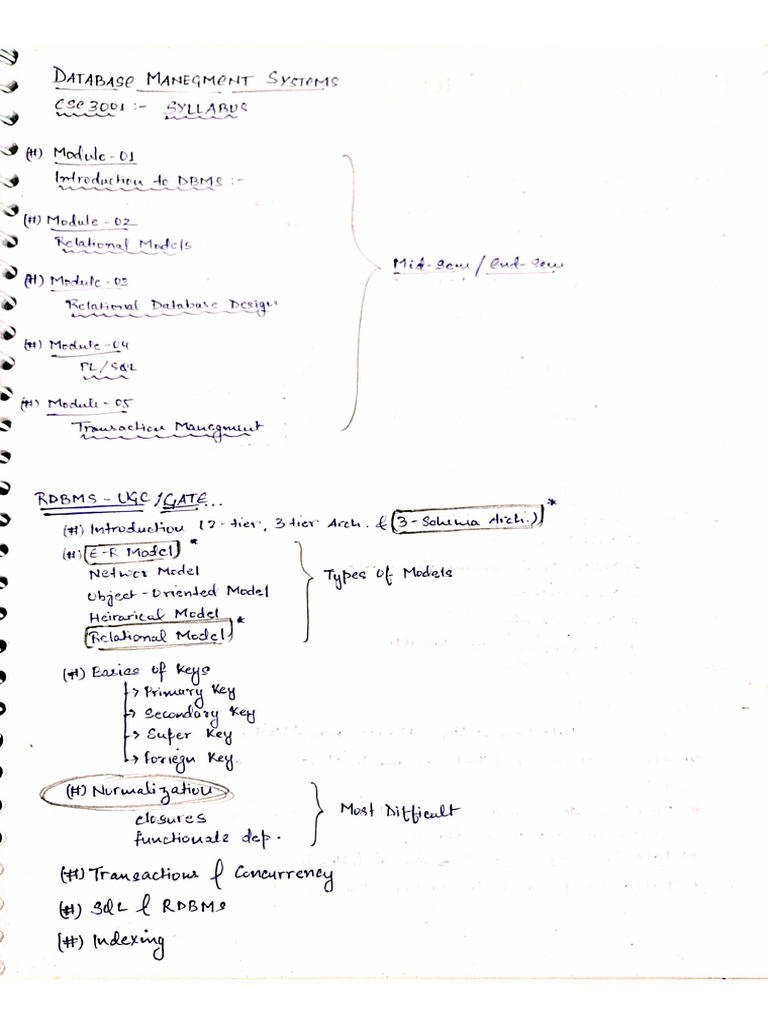 DATABASE MANEGMENT SYSTEMS
CSE3001 :- SYLLABUS
(#) Module-01
Introduction to DBMS :-
(#) Module-02
Relational Models
(#) Module-03
Relational Database Design
(#) Module-04
PL/SQL
(#) Module-05
Transaction Manegment
Mid-Sem / End-Sem
RDBMS - UGC/GATE...
(#) Introduction (2-tier, 3 tier Arch. & 3-Schema Arch.)*
(#) E-R Model *
Networ Model
Object-Oriented Model
Heirarical Model
Relational Model *
Types of Models
(#) Basics of Keys
→ Primary Key
→ Secondary Key
→ Super Key
→ Foriegn Key.
(#) Normalization
closures
functional2 dep.
Most Difficult
(#) Transactions & Concurrency
(#) SQL & RDBMS
(#) Indexing